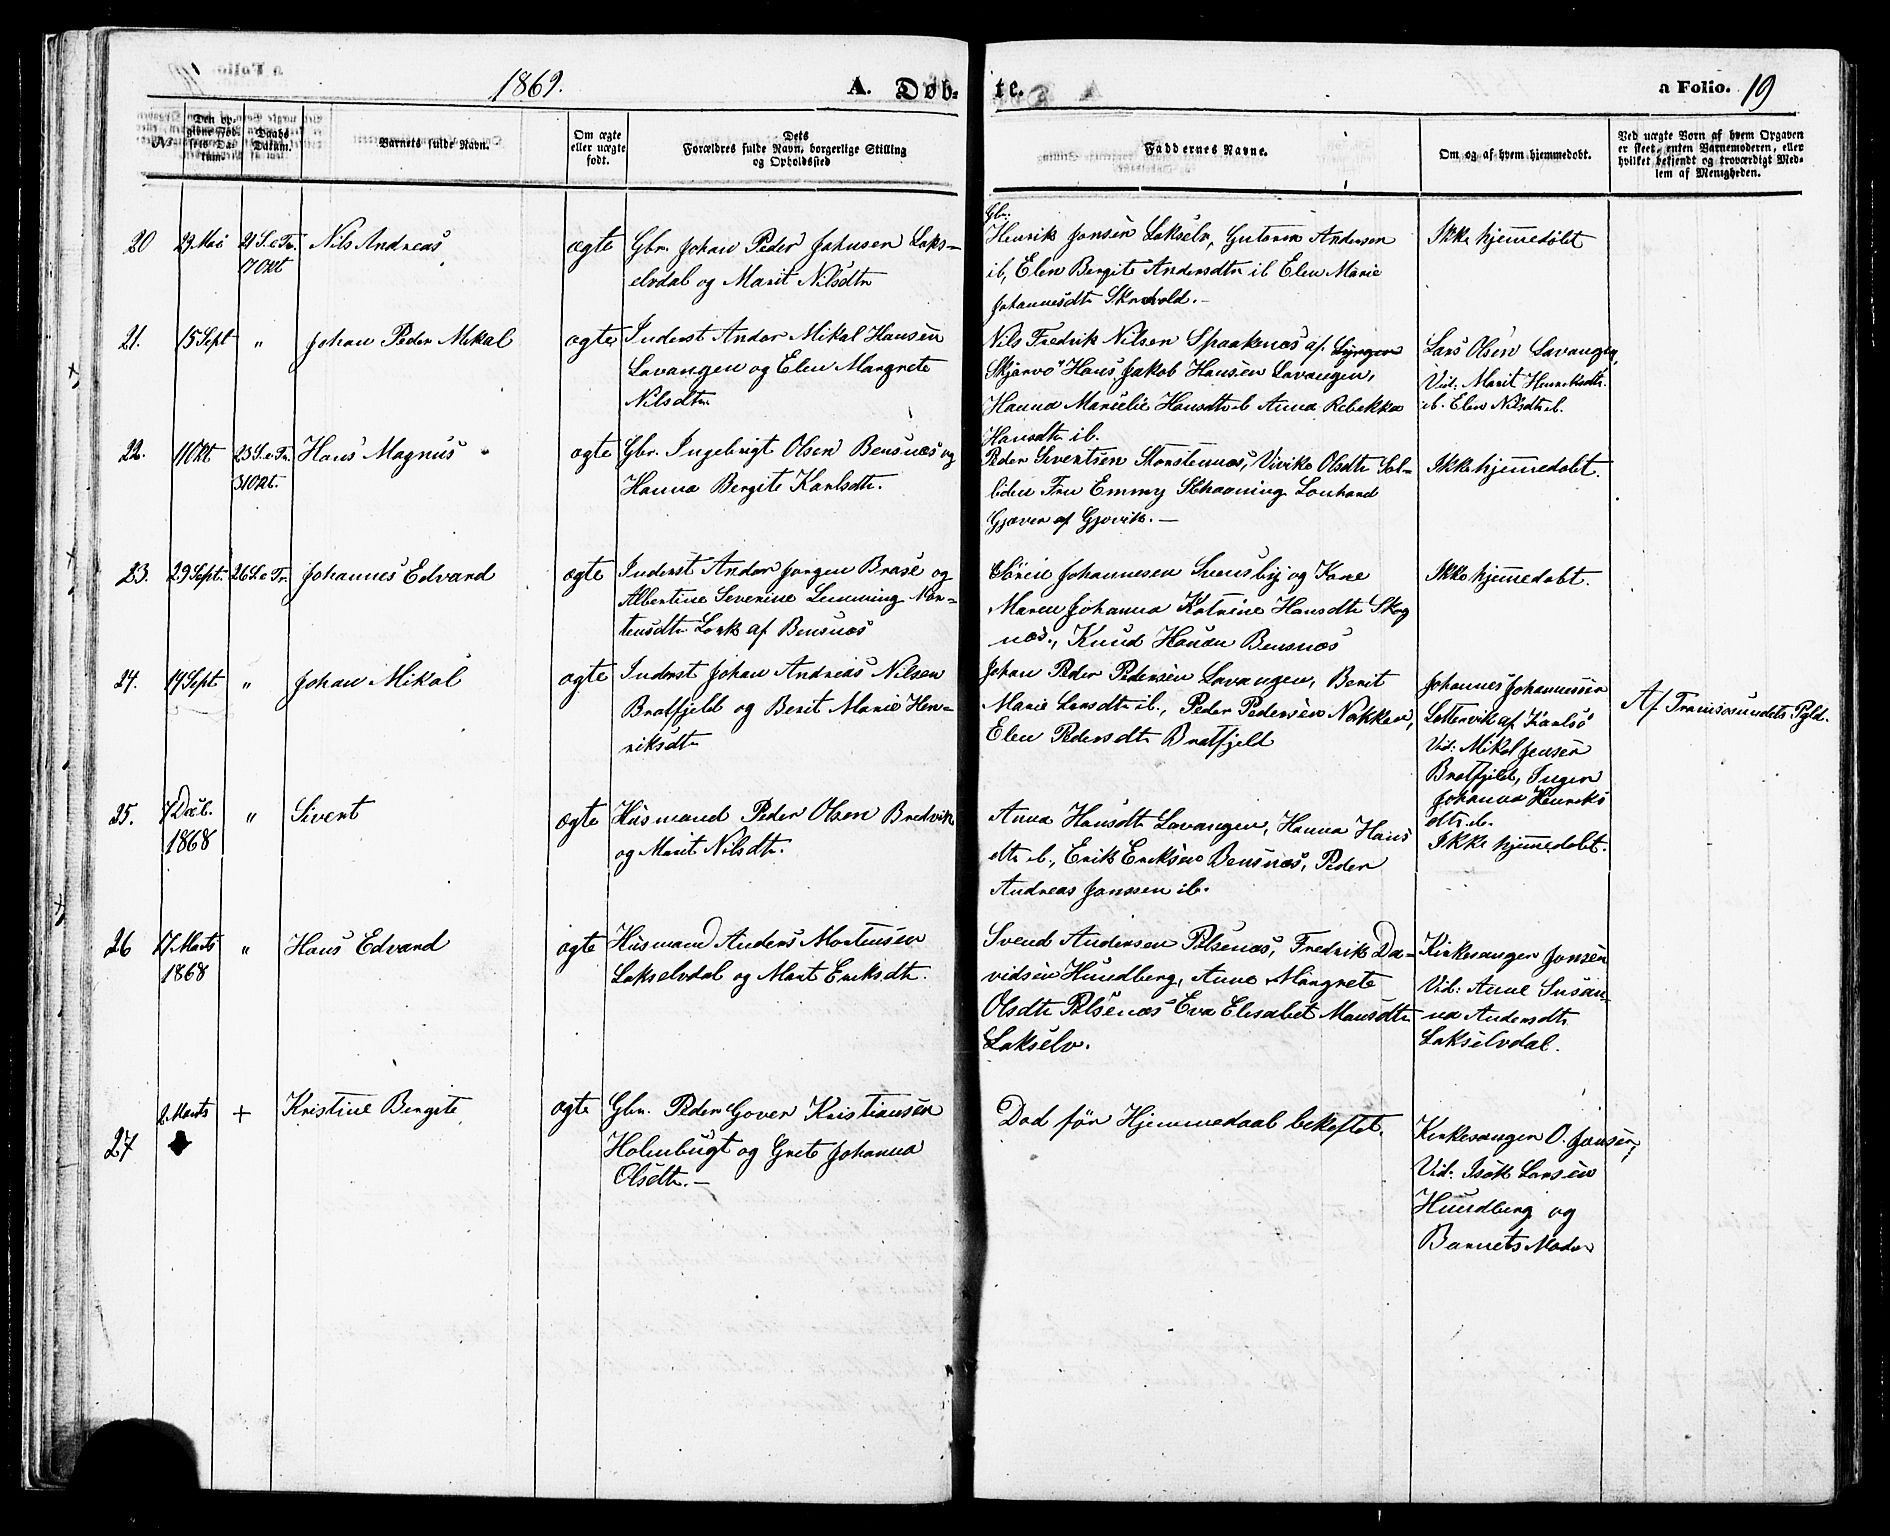 1869. A. Døb- te. a Folio. 19
No. Den opgivne Fødsels Datum. Daabs Datum. Barnets fulde Navn. Om ægte eller uægte født. Dets Forældres fulde Navn, borgerlige Stilling og Opholdssted Faddernes Navne. Om og af hvem hjemmedøbt. Ved uægte Børn af hvem Opgaven er skeet, enten Barnemoderen, eller hvilket bekjendt og troværdigt Medlem af Menigheden.
20 29 Mai 21 S. e. Tr. 17 Okt Nils Andreas ægte
Gbr. Johan Peder Johnsen Laks-
elvdal og Marit Nilsdtr
Gbr.
Henrik Jonsen Lakselv, Andersen
ib, Elen Bergite Andersdtr ib Elen Marie
Johannesdtr
Ikke hjemmedøbt
21. 15 Sept " Johan Peder Mikal ægte
Inderst Andor Mikal Hansen
Lavangen og Elen Margrete
Nilsdtr.
Nils Fredrik Nilsen Spaaknæs af Lyngen
Skjærvø" Hans Jakob Hansen Lavangen,
Hanna Marselie Hansdtr ib Anna Rebekka
Hansdtr ib.
Lars Olsen Lavangen,
Vid: Marit Henriksdtr.
ib. Elen Nilsdtr ib.
22. 11 Okt 23 S. e. Tr. 31 Okt. Hans Magnus ægte
Gbr. Ingebrigt Olsen Bensnæs og
Hanna Bergite Karlsdtr.
Peder Sivertsen Storstennæs, Vivike Olsdtr Sol-
liden Fru Emmy Schaaning Lonhard
Gjæver af Gjøvik. —
Ikke hjemmedøbt.
23. 29 Sept. 26 S. e. Tr. Johannes Edvard ægte
Inderst Andor Jørgen Brase og
Albertine Severine Lemming Mor-
tensdtr Lork af Bensnæs
Sørine Johannesen Svensby og Kone
Maren Johanna Katrine Hansdtr Skog
næs., Knud Hansen Bensnæs
Ikke hjemmedøbt.
24. 14 Sept " Johan Mikal ægte
Inderst Johan Andreas Nilsen
Bratfjeld og Berit Marie Hen-
riksdtr
Johan Peder Pedersen Lavangen, Berit
Marie Larsdtr ib., Peder Pedersen Nakken,
Elen Pedersdtr Bratfjeld
Johannes Johannessen
Lattervik af Karlsø
Vid: Mikal Jensen
Bratfjeld, Inger
Johanna Henriks
dtr. ib.
Af Tromsøsundets Pgld.
25. 7 Decb. 1868 " Sivert ægte
Husmand Peder Olsen Bredvik
og Marit Nilsdtr.
Anna Hansdtr Lavangen, Hanna Hans
dtr ib., Erik Eriksen Bensnæs, Peder
Andreas Janssen ib.
Ikke hjemmedøbt.
26 17 Marts 1868 " Hans Edvard ægte
Husmand Anders Mortensen
Lakselvdal og Marit Eriksdtr.
Svend Andersen Pølsenæs, Fredrik Da-
vidsen Hundberg, Anne Margrete
Olsdtr Pølsenæs Eva Elisabet Mansdtr
Lakselv.
Kirkesanger Jonsen
Vid: Anne Susan-
na Andersdtr
Lakselvdal.
27 2 Marts + Kristine Bergite ægte
Gbr. Peder Gover Kristiansen
Holmbugt og Grete Johanna
Olsdtr. —
Død før Hjemmedaab bekræftet.
Kirkesanger O. Jonsen,
Vid: Isak Larsen
Hundberg og
Barnets Moder